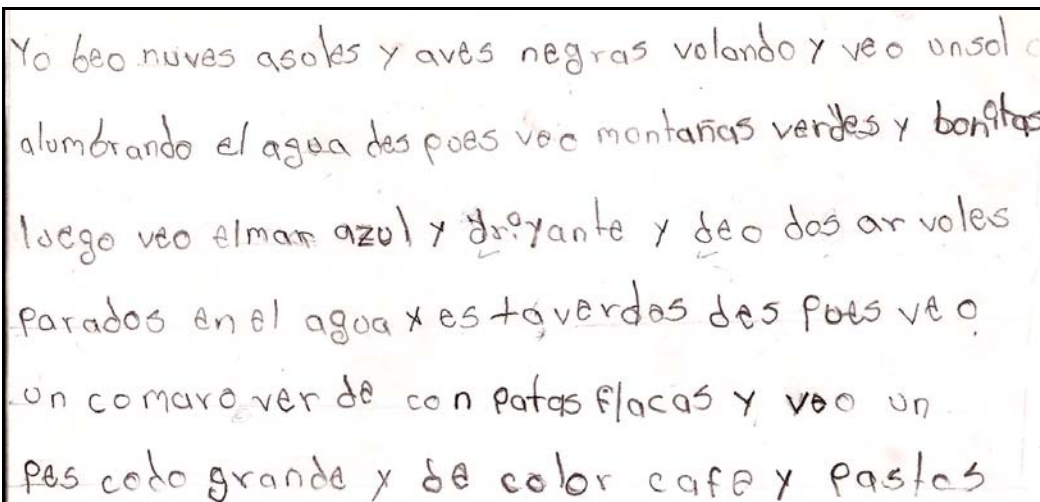 Yo beo nuves asoles y aves negras volando y veo unsol
alumbrando el agua des pues veo montañas verdes y bonitas
luego veo elmar azul y driyante y deo dos ar voles
parados en el agua y está verdes des pues veo
un comaro ver de con patas flacas y veo un
pes codo grande y de color cafe y pastos